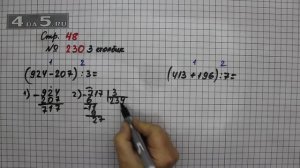 4a-5a.ru
Стр. 48
№ 230 3 столбик
1 2 1 2
(924-207):3= (413+196):7=
1) -924 2) -717 3
207 6 234
717 -11
27